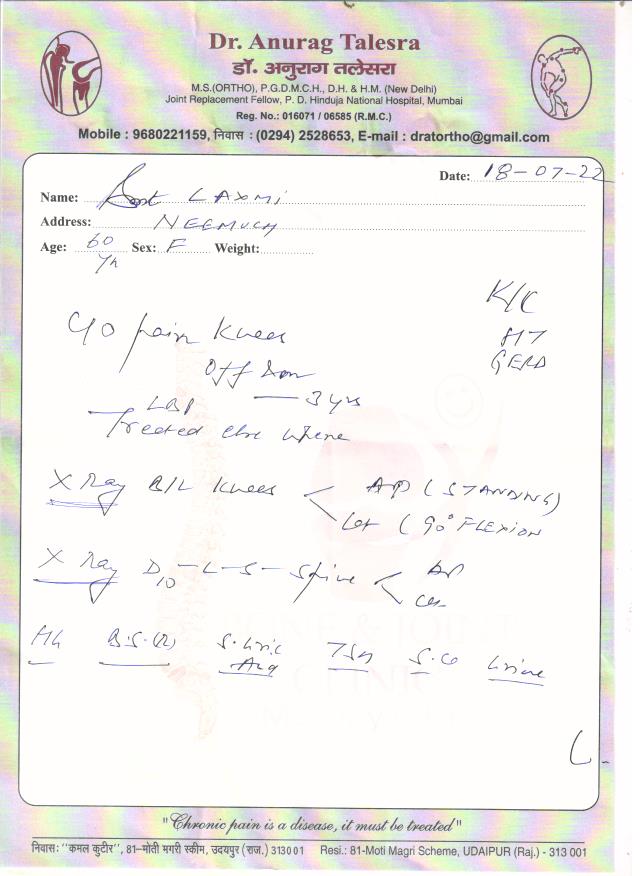 Dr. Anurag Talesra
डॉ. अनुराग तलेसरा
M.S.(ORTHO), P.G.D.M.C.H., D.H. & H.M. (New Delhi)
Joint Replacement Fellow, P. D. Hinduja National Hospital, Mumbai
Reg. No.: 016071 / 06585 (R.M.C.)
Mobile : 9680221159, निवास : (0294) 2528653, E-mail : dratortho@gmail.com
Date: 18-07-22
Name: LAXMI
Address: NEEMUCH
Age: 60 Yr Sex: F Weight:
K/C
HT
GERD
C/O pain Knees
Off & on
— 3 yrs
— LBP
Treated else where
X Ray B/L Knees AP (STANDING)
Lat (90° FLEXION
X Ray D10-L-S-Spine AP
Hb B.S.(R) S. Uric TSH Urine
Acid
"Chronic pain is a disease, it must be treated"
निवास: "कमल कुटीर", 81-मोती मगरी स्कीम, उदयपुर (राज.) 313001 Resi.: 81-Moti Magri Scheme, UDAIPUR (Raj.) - 313 001